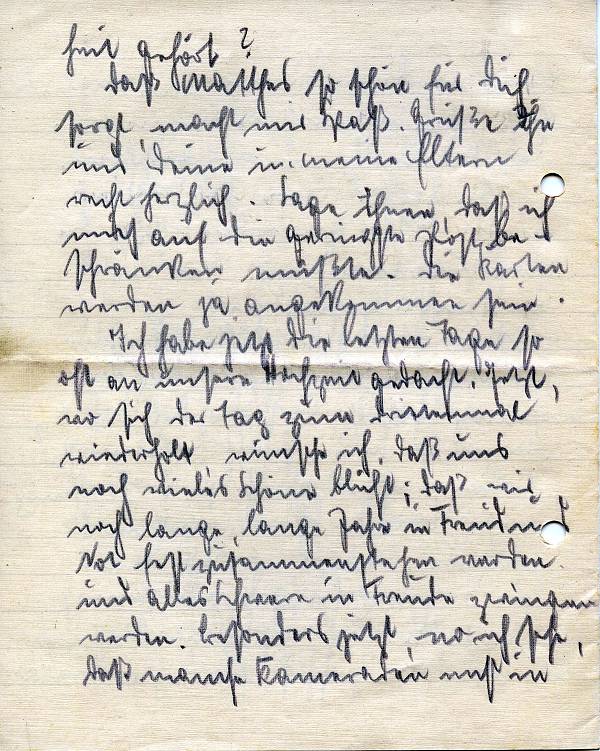 heit gehört?
Daß Matthes so schön für Dich
sorgt, macht mir Spaß. Grüße ihn
und Deine u. meine Eltern
recht herzlich. Sage ihnen, daß ich
mich auf die geringste Post be-
schränken müßte. Die Karten
werden ja angekommen sein.
Ich habe jetzt die letzten Tage so
oft an unsere Hochzeit gedacht. Jetzt,
wo sich der Tag zum drittenmal
wiederholt wünsche ich, daß uns
noch vieles Schöne blüht; daß wir
noch lange, lange Jahre in Freud und
Not fest zusammenstehen werden
und alles Schwere in Freude zwingen
werden. Besonders jetzt, wo ich sehe,
daß manche Kameraden nicht in